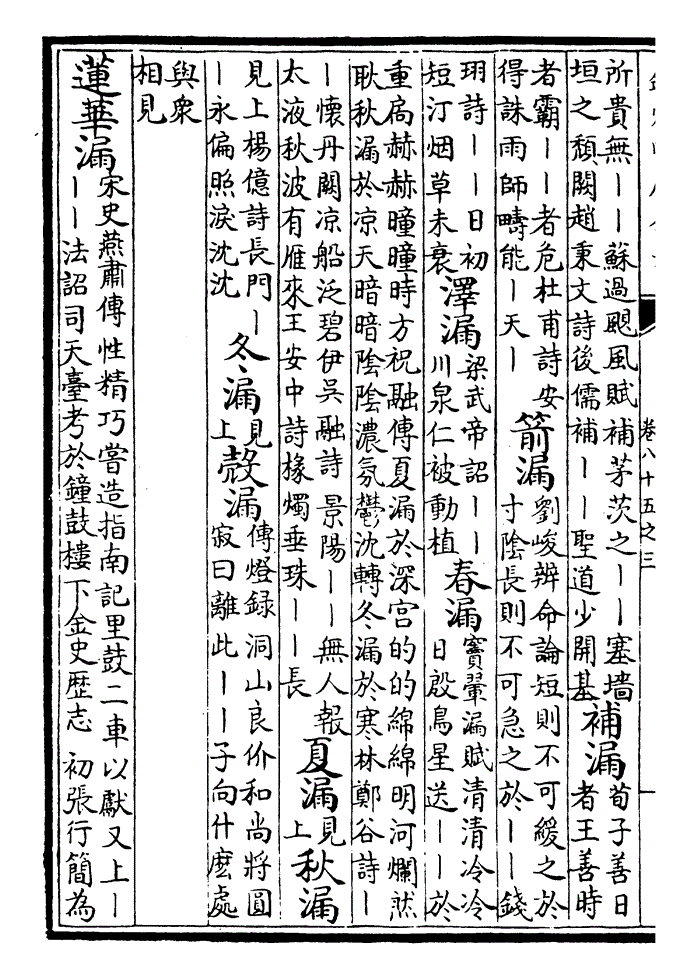 卷八十五之三
所貴無――蘇過颶風賦補茅茨之――塞墻
垣之頹闕趙秉文詩後儒補――聖道少開基
補漏
荀子善日
者王善時
者霸――者危杜甫詩安
得誅雨師疇能―天―
箭漏
劉峻辨命論短則不可緩之於
寸陰長則不可急之於――錢
珝詩――日初
短汀烟草未衰
澤漏
梁武帝詔――
川泉仁被動植
春漏
竇鞏漏賦清清冷冷
日殷鳥星送――於
重扃赫赫曈曈時方祝融傳夏漏於深宫的的綿綿明河爛然
耿秋漏於凉天暗暗陰陰濃氛鬱沈轉冬漏於寒林鄭谷詩―
―懷丹闕凉船泛碧伊吳融詩 景陽――無人報
太液秋波有雁來王安中詩椽燭垂珠――長
夏漏
見
上
秋漏
見上楊億詩長門―
―永偏照淚沈沈
冬漏
見
上
殻漏
傳燈録 洞山良价和尚將圓
寂曰離此――子向什麽處
與衆
相見
蓮華漏
宋史燕肅傳性精巧嘗造指南記里鼓二車以獻又上―
――法詔司天臺考於鐘鼓樓下金史歴志 初張行簡為